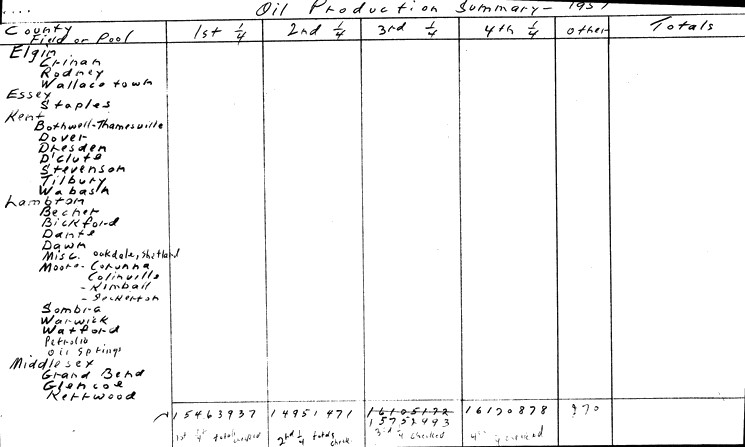 Oil Production Summary- 1957
County
Field or Pool
1st 1/4 2nd 1/4 3rd 1/4 4th 1/4 other Totals
Elgin
Crinan
Rodney
Wallace town
Essex
Staples
Kent
Bothwell-Thamesville
Dover
Dresden
D'clute
Stevenson
Tilbury
Wabash
Lambton
Becher
Bickford
Dante
Dawn
Misc. Oakdale, Shetland
Moore- Corunna
Colinville
- Kimball
- Seckerton
Sombra
Warwick
Watford
Petrolia
Oil Springs
Middlesex
Grand Bend
Glencoe
Kerrwood
15463937 14951471 16105172 16170878 970
15752493
1st 1/4 total checked 2nd 1/4 totals check 3rd 1/4 checked 4th 1/4 checked